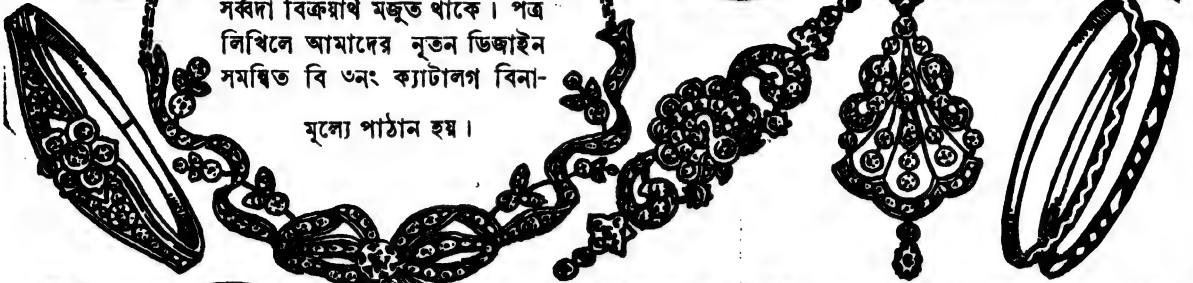 সর্ব্বদা বিক্রয়ার্থ মজুত থাকে। পত্র
লিখিলে আমাদের নূতন ডিজাইন
সমন্বিত বি ৩নং ক্যাটালগ বিনা-
মূল্যে পাঠান হয়।